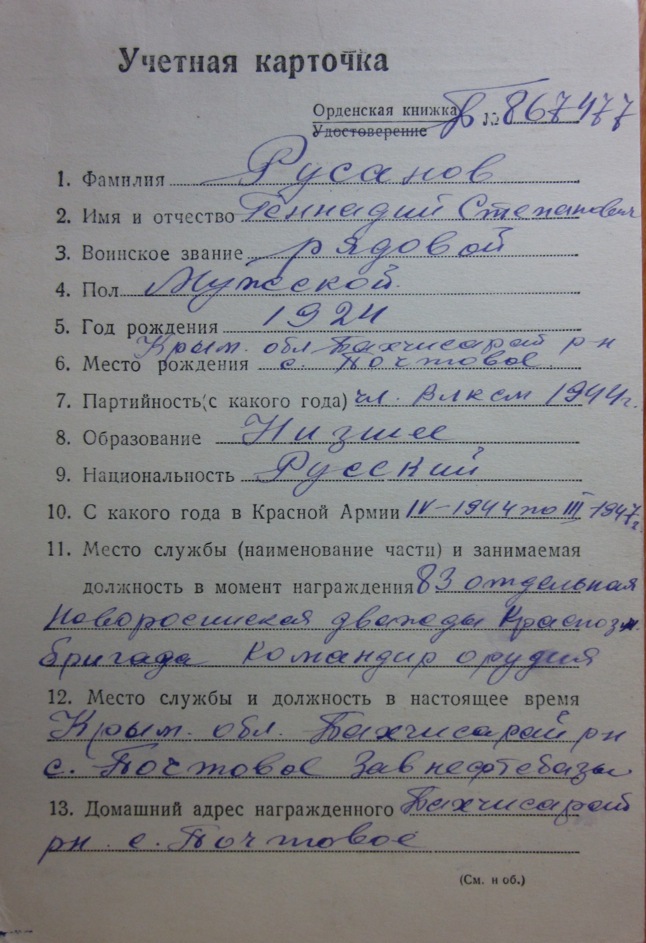 Учетная карточка
Орденская книжка В № 867477
Удостоверение
1. Фамилия Русанов
2. Имя и отчество Геннадий Степанович
3. Воинское звание рядовой
4. Пол Мужской
5. Год рождения 1924
Крым. обл Бахчисарай р-н
6. Место рождения с. Почтовое
7. Партийность(с какого года) чл. Влксм 1944 г.
8. Образование Низшее
9. Национальность Русский
10. С какого года в Красной Армии IV-1944 по III-1947 г.
11. Место службы (наименование части) и занимаемая
должность в момент награждения 83 отдельная
Новоросийская дважды Краснозн.
бригада командир орудия
12. Место службы и должность в настоящее время
Крым. обл. Бахчисарай рн
с. Почтовое Зав нефтебазы
13. Домашний адрес награжденного Бахчисарай
рн. с. Почтовое
(См. н об.)